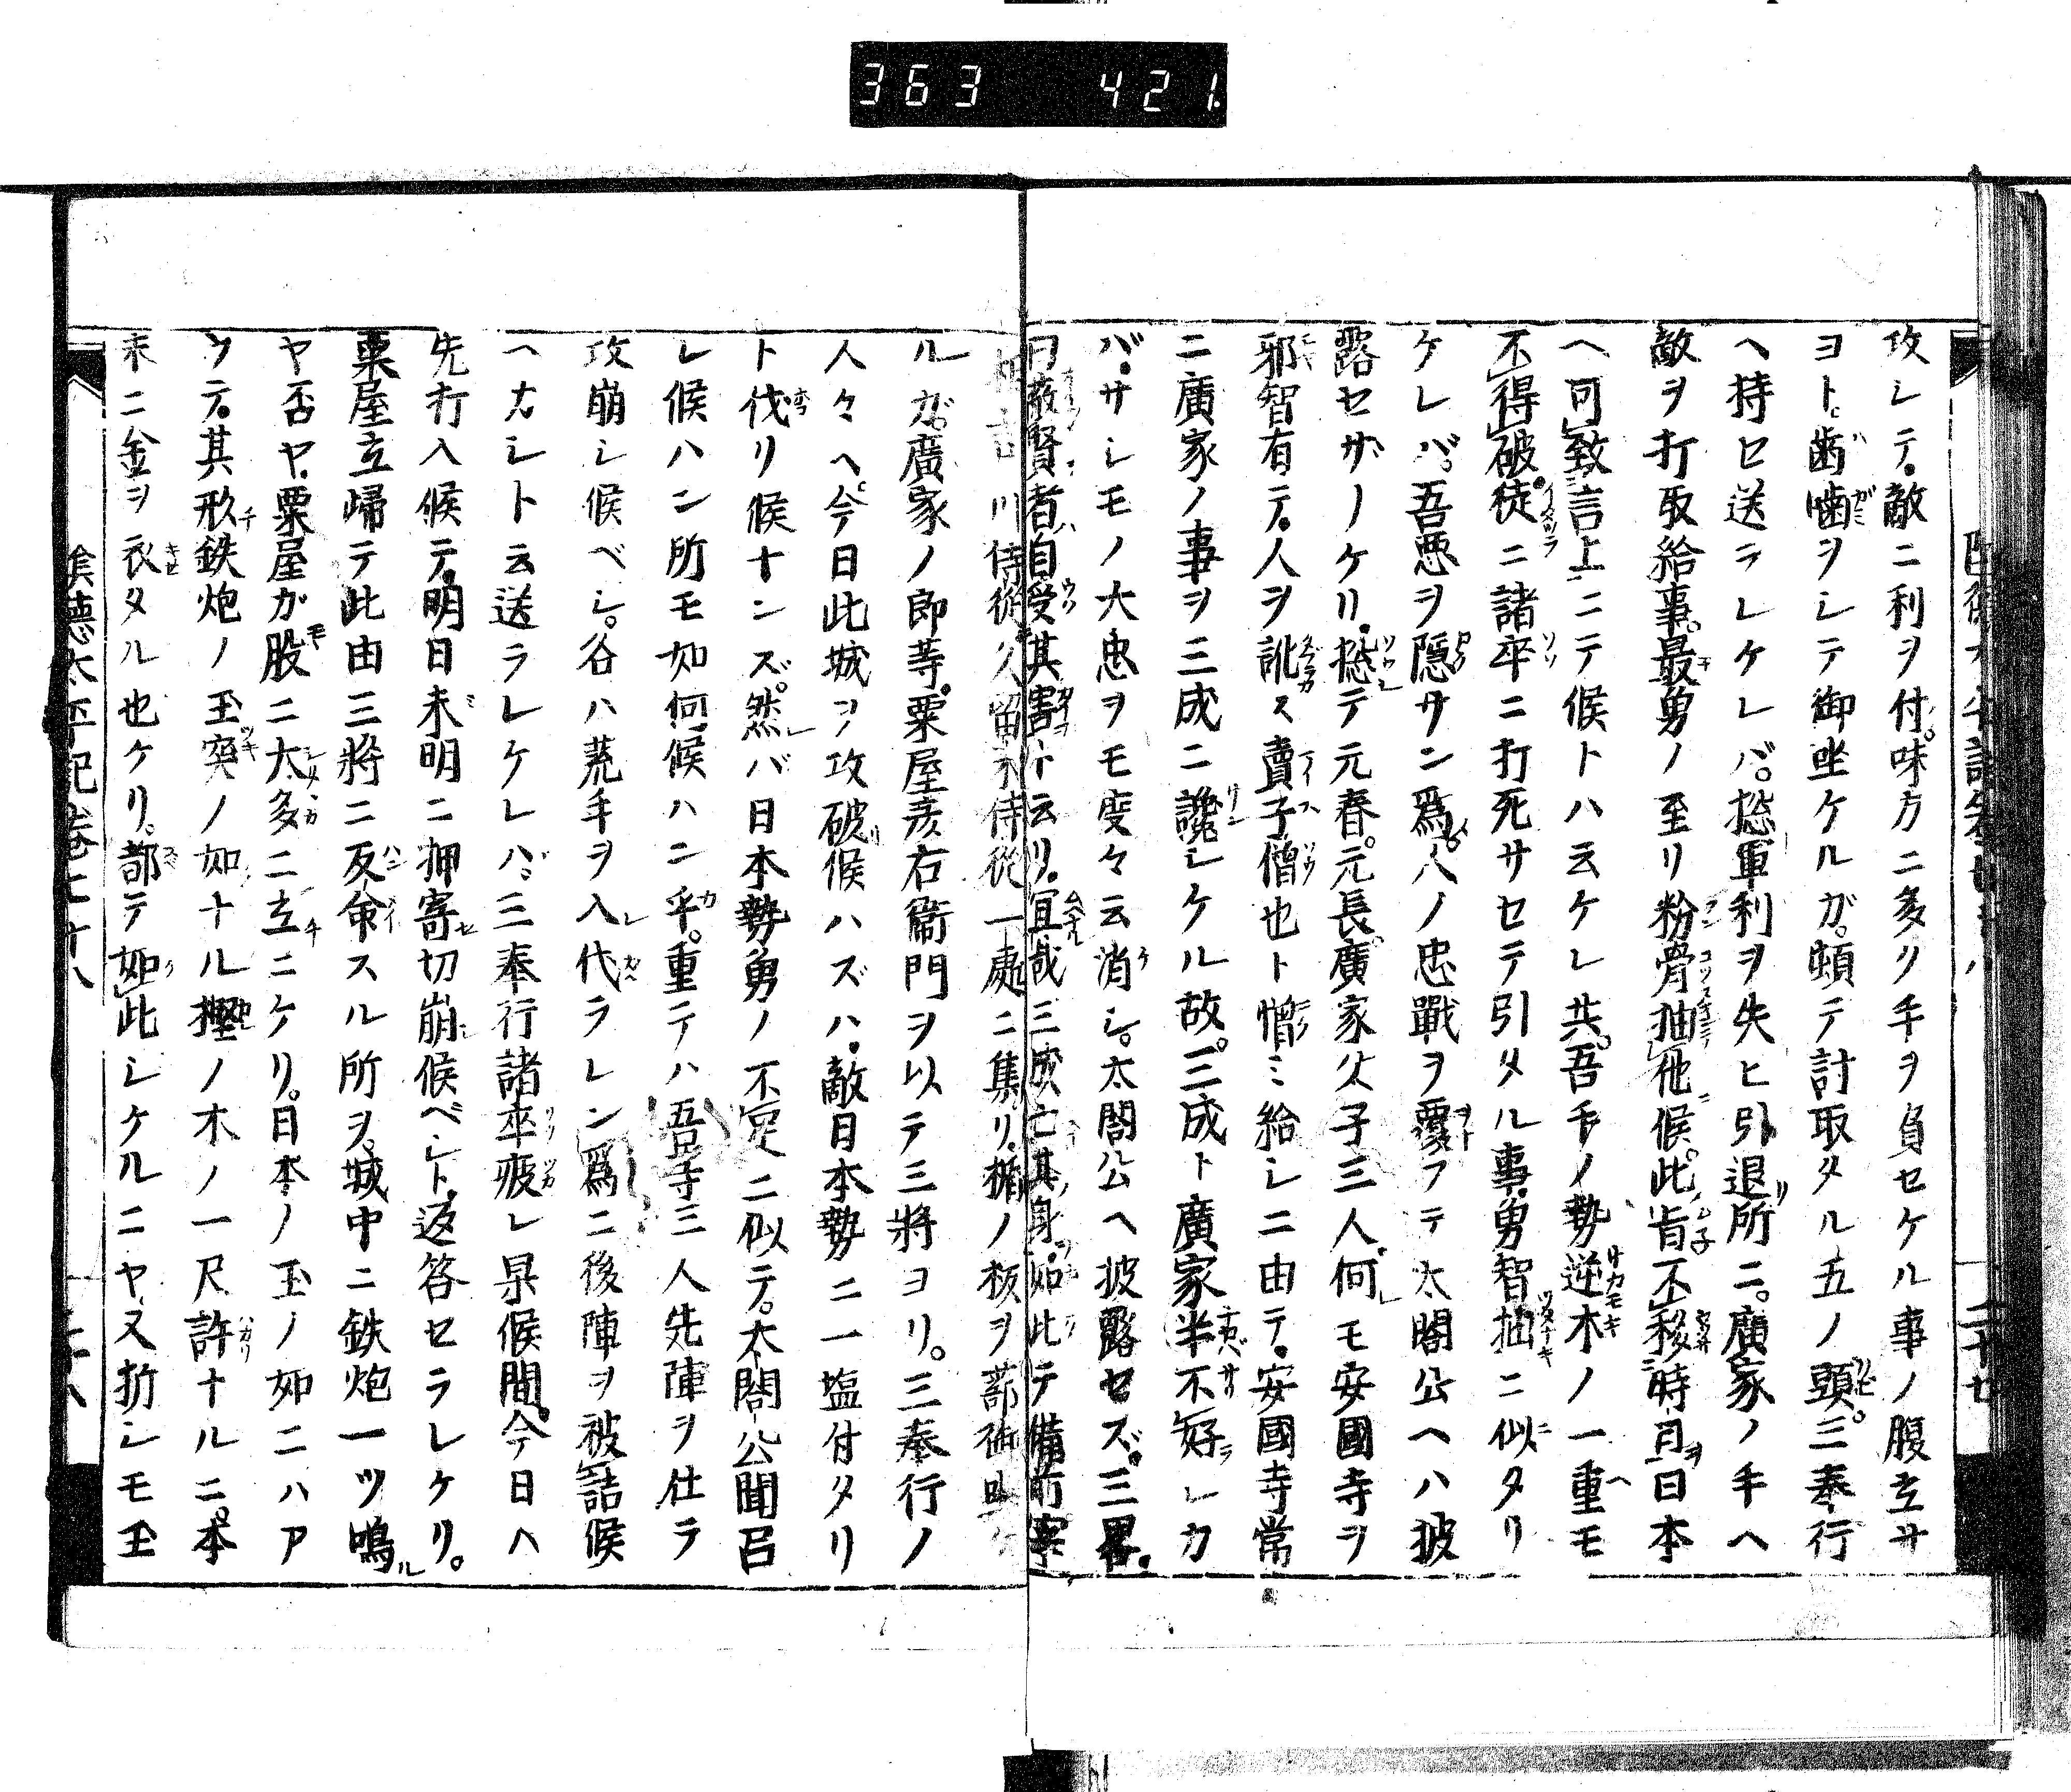 363 421
攻シテ。敵ニ利ヲ付。味方ニ多ク手ヲ負セケル事ノ腹立サ
ヨト。歯噛ヲシテ御坐ケルガ。頓テ討取タル五ノ頭。三奉行
ヘ持セ送ラレケレバ。惣軍利ヲ失ヒ引退所ニ。廣家ノ手ヘ
敵ヲ打取給事。最勇ノ至リ粉骨抽他候。此旨不移時日日本
ヘ可致言上ニテ候トハ云ケレ共。吾手ノ勢逆木ノ一重モ
不得破徒ニ諸卒ニ打死サセテ引タル事。勇智抽ニ似タリ
ケレバ。吾悪ヲ隠サン爲。人ノ忠戰ヲ覆フテ太閤公ヘハ披
露セザノケリ。惣テ元春。元長。廣家父子三人何モ安國寺ヲ
邪智有テ。人ヲ訛ス賣子僧也ト憎ミ給シニ由テ。安國寺常
ニ廣家ノ事ヲ三成ニ讒シケル故。三成ト廣家半不好シカ
バ。サシモノ大忠ヲモ度々云消シ。太閤公ヘ披露セズ。三畧
曰蔽賢者自受其害ト云リ。宜哉三成亡其身。如此テ備前宰
相吉川侍從久留米侍從一處ニ集リ。楯ノ板ヲ蔀
ルガ。廣家ノ郎等。粟屋彦右衞門ヲ以テ三將ヨリ。三奉行ノ
人々ヘ。今日此城ヲ攻破候ハズハ。敵日本勢ニ一塩付タリ
ト伐リ候ナンズ。然バ日本勢勇ノ不足ニ似テ。太閤公聞召
レ候ハン所モ如何候ハン乎。重テハ吾等三人先陣ヲ仕ラ
攻崩シ候ベシ。谷ハ荒手ヲ入代ラレン爲ニ後陣ヲ被詰候
ヘカシト云送ラレケレバ。三奉行諸卒疲レ果候間。今日ハ
先打入候テ。明日未明ニ押寄切崩候ベシト。返答セラレケリ。
粟屋立帰テ此由三將ニ反命スル所ヲ。城中ニ鉄炮一ツ鳴ル
ヤ否ヤ。粟屋ガ股ニ太多ニ立ニケリ。日本ノ玉ノ如ニハア
ラテ。其形鉄炮ノ玉突ノ如ナル樫ノ木ノ一尺許ナルニ。本
末ニ金ヲ衣タル也ケリ。都テ如此シケルニヤ。又折シモ玉
陰徳太平記巻七十八